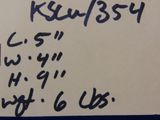 KSCW/354
L. 5"
W. 4"
H. 9"
wgt. 6 Lbs.